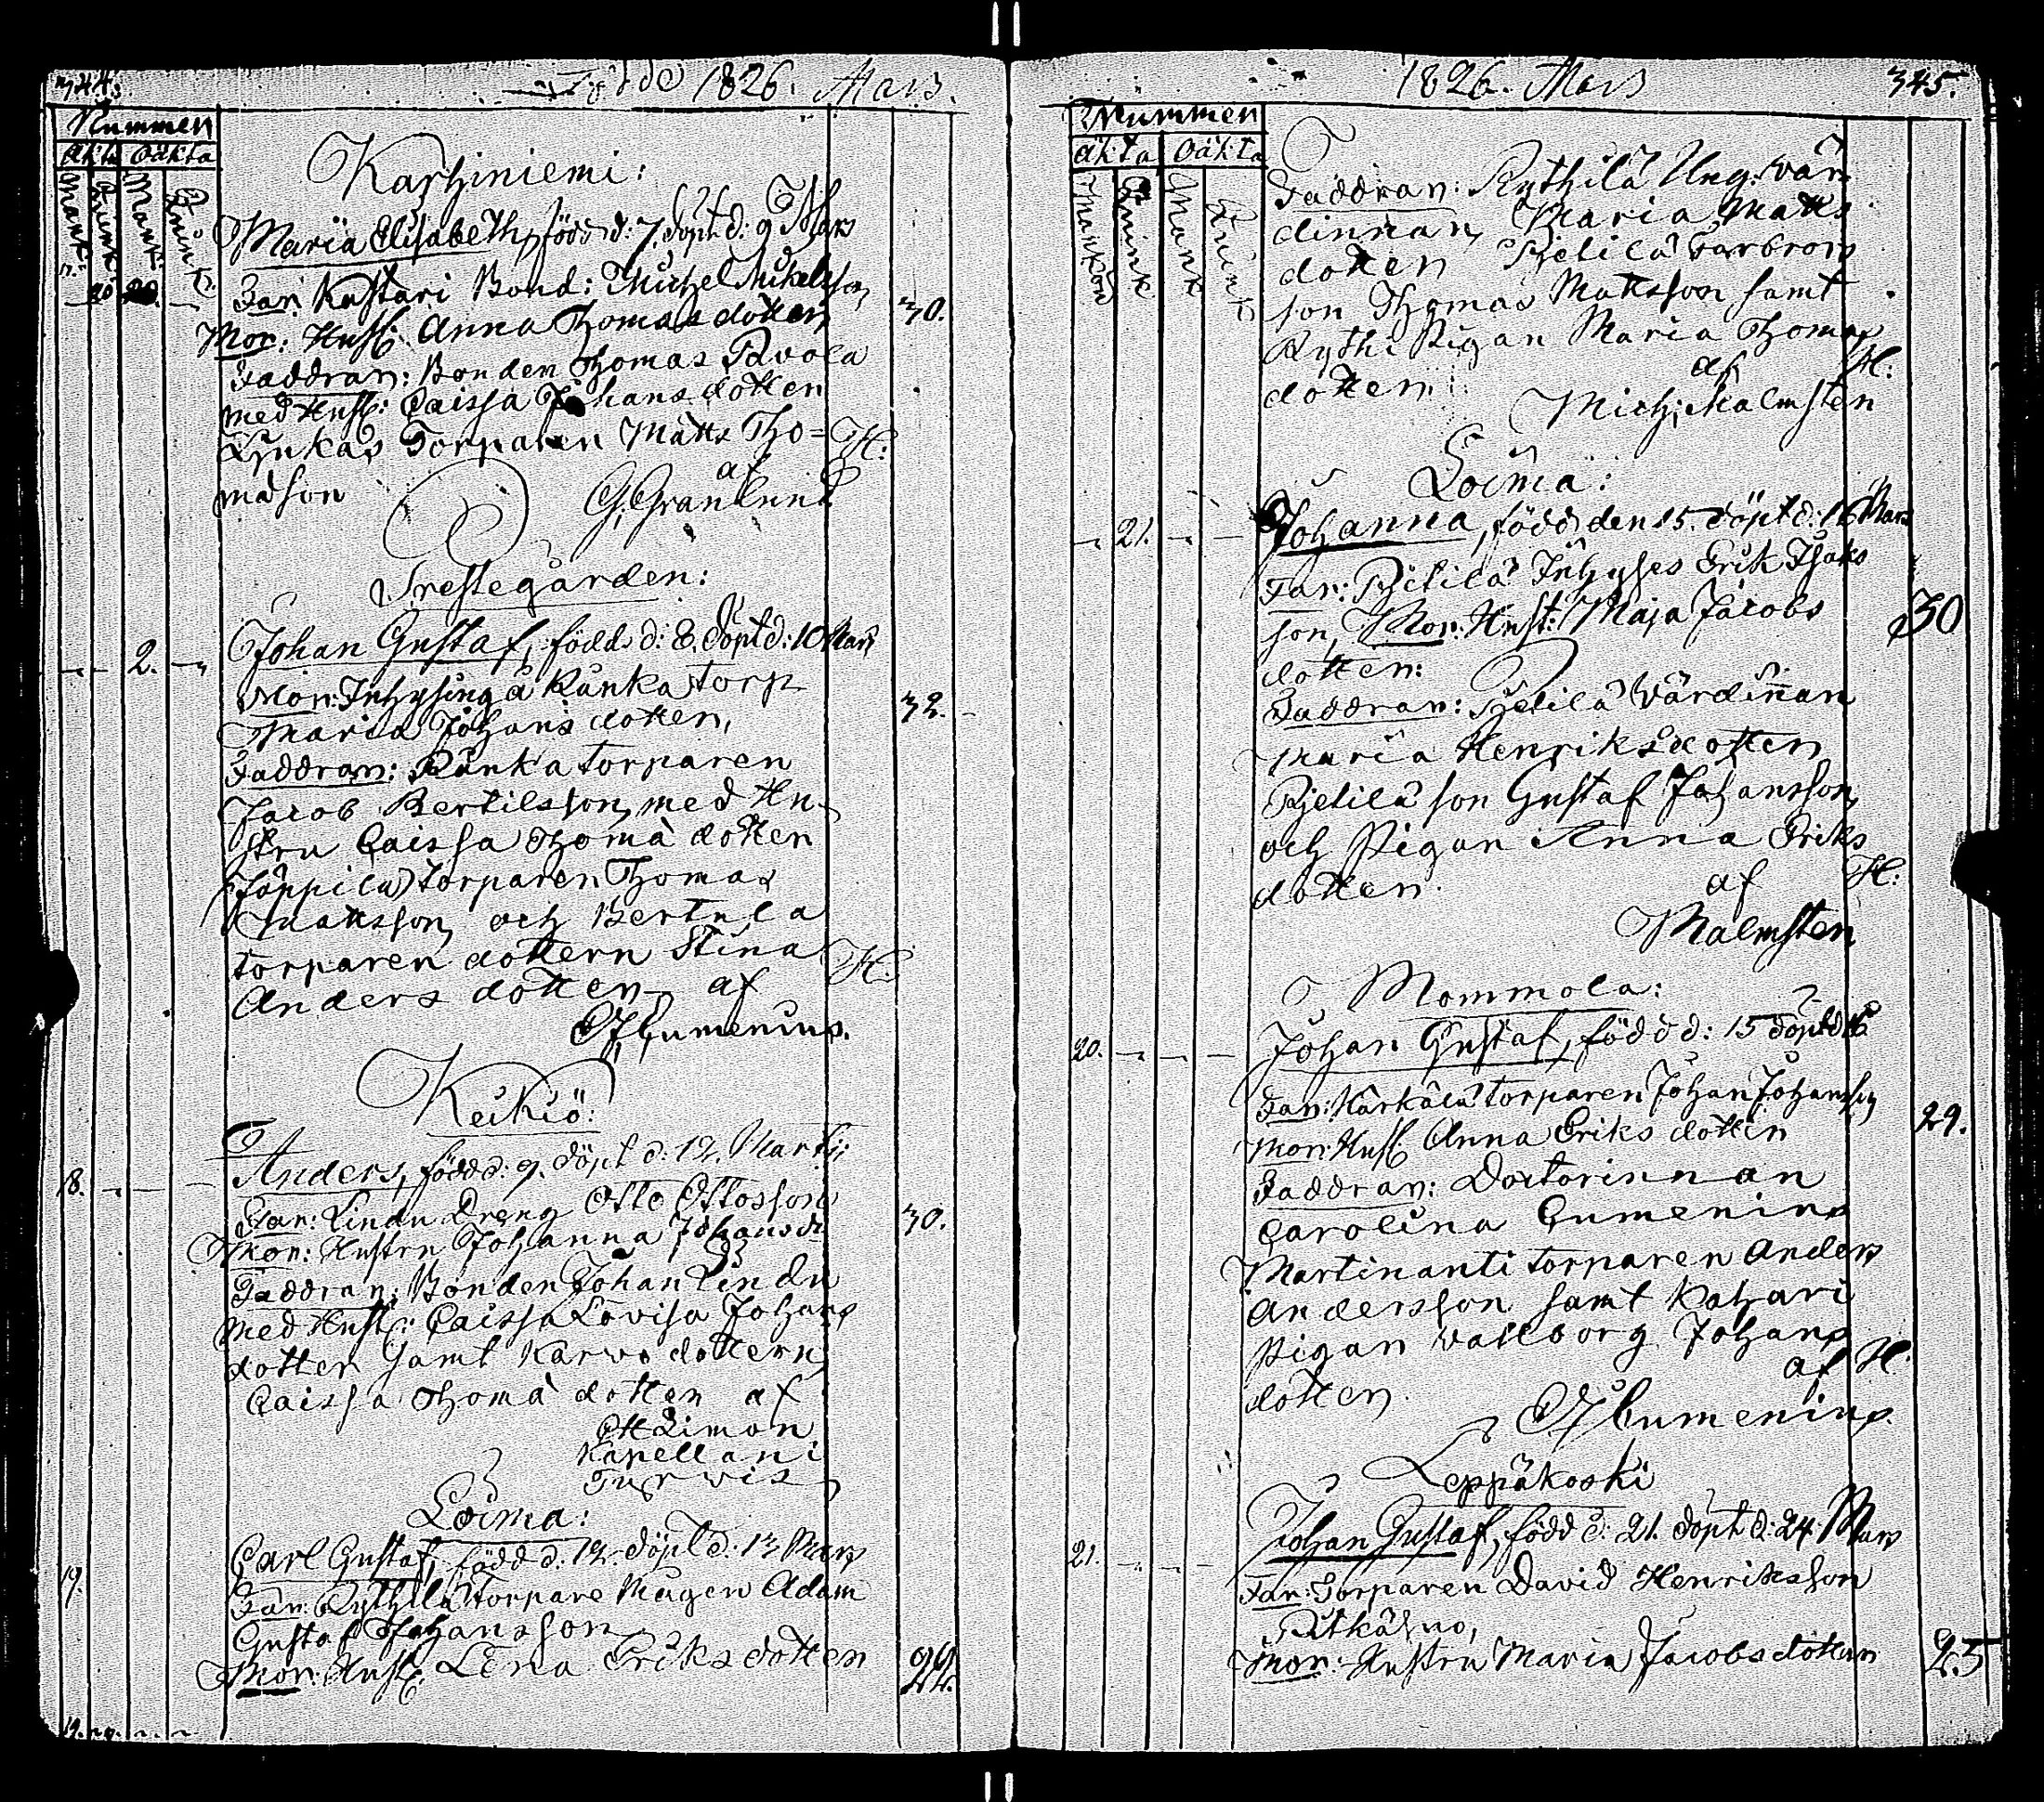 344.
Födde 1826. Mars.
Nummer
äkta oäkta
Mank. Quink. Mank. Quink.
Karhiniemi:
Maria Elisabeth, född d: 7. döpt d: 9 Mars
20
Far: Kustari Bond: Michel Mickelsson
30.
Mor: Hust: Anna Thomasdotter
Faddrar: Bonden Thomas
med Hust: Caissa Johans dotter
Torparen Matts Tho=
H:
masson
af
G. Granlund
Prestegården:
Johan Gustaf, född d: 8. döpt d: 10 Mars
2.
Mor: Inhysing å Runka torp
Maria Johans dotter,
32.
Faddrar: Runka torparen
Jacob Bertilsson, med Hu-
stru Caissa Thomä dotter
torparen Thomas
Mattsson, och Bertula
torpare dottern Stina
H:
Anders dotter, af
Gumenius.
Keikiö:
Anders, född d: 9. döpt d: 12. Martii
18.
Far: Lindu Dreng Otto Ottosson
30.
Mor: Hustru Johanna Johansdr
Faddrar: Bonden Johan Lindu
med Hust: Caissa Lovisa Johans
dotter samt Karvo dottern
Caissa Thomä dotter af
Limon
Kapellan i
Loima:
Carl Gustaf, född d: 12. döpt d: 13 Mars
19.
Far: Rythilä Torpare Mågen Adam
Gustaf Johansson
Mor: Hust: Lena Eriks dotter
24.
19.
1826. Mars
345.
Nummer
äkta oäkta
Mankön Quink Mank Quink
Faddrar: Rythilä Ung: vär-
dinnan Maria Matts
dotter Pjelilä farbrors
son Thomas Mattsson samt
Rythi Pigan Maria Thomas
dotter.
af
H:
Mich: Malmsten
Loima:
Johanna, född den 15. döpt d: 16 Mars
21.
Far: Pjelilä Inhyses Erik Isaks
son, Mor: Hust: Maja Jacobs
30
dotter:
Faddrar: Pjelilä Värdinnan
Maria Henriksdotter
Pjelilä son Gustaf Johansson
och Pigan Anna Eriks
dotter.
af
H:
Malmsten
Mommola:
Johan Gustaf, född d: 15 döpt d 16
20.
Far: Karkala torparen Johan Johansson
29.
Mor: Hust Anna Eriks dotter
Faddrar: Doctorinnan
Carolina Gumenius
Martinanti torparen Anders
Andersson samt Kahari
Pigan Vallborg Johans
dotter.
af
H:
Gumenius.
Leppäkoski
Johan Gustaf, född d: 21. döpt d: 24. Mars
21.
Far: Torparen David Henriksson
Mor: Hustru Maria Jacobsdotter
25